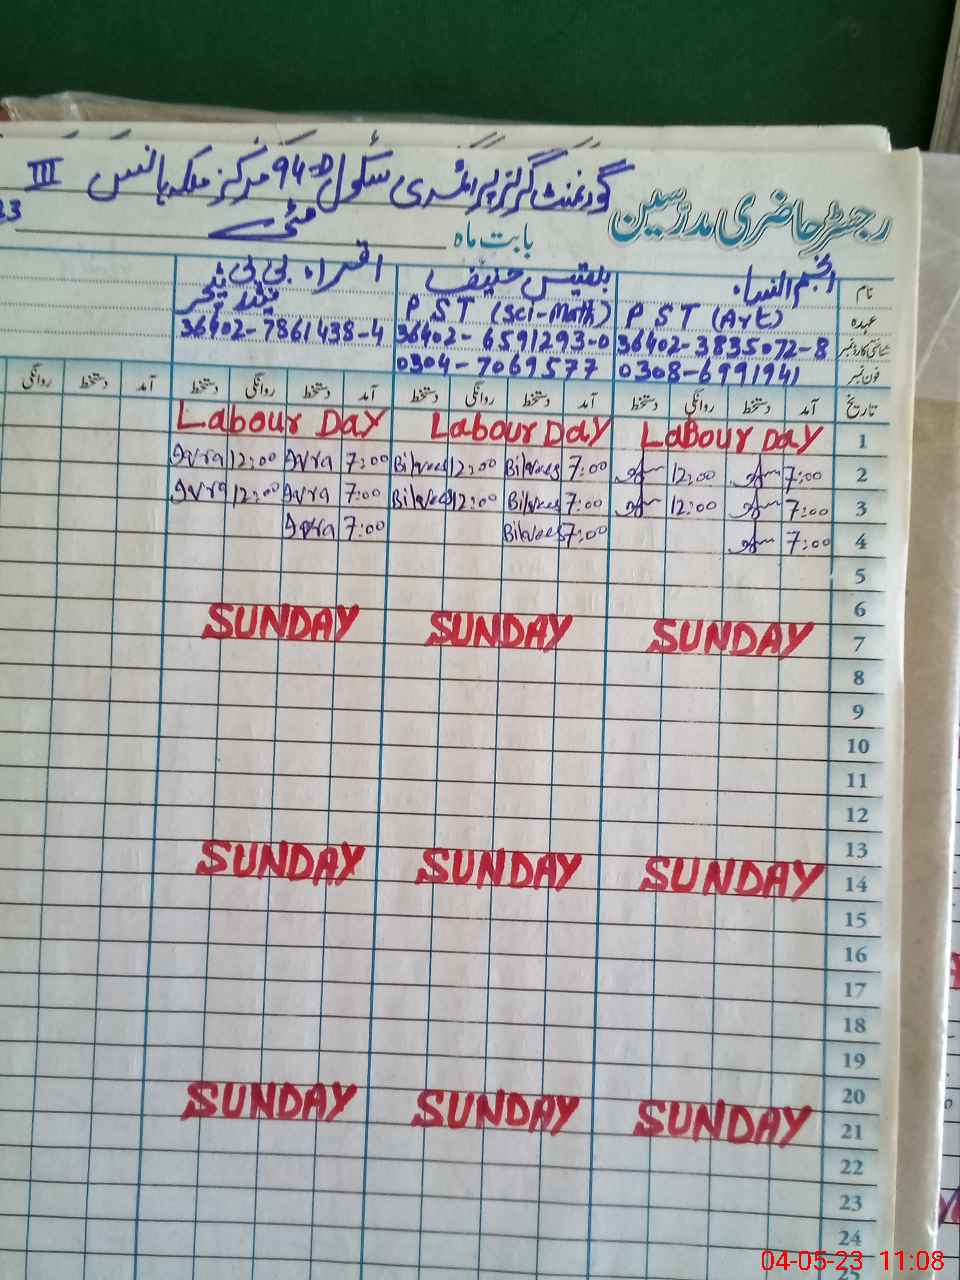 گورنمنٹ گرلز پرائمری سکول 94-D مرکز ملکہ ہانس III
رجسٹر حاضری مدرسین
بابت ماہ مئی 23
نام انجم النساء بلقیس حنیف اقراء بی بی
عہدہ P S T (Art) P S T (Sci-Math) ٹیچر
شناختی کارڈ نمبر 36402-3835072-8 36402-6591293-0 36402-7861438-4
فون نمبر 0308-6991941 0304-7069577
تاریخ آمد دستخط روانگی دستخط آمد دستخط روانگی دستخط آمد دستخط روانگی دستخط آمد دستخط روانگی
1 Labour Day Labour Day Labour Day
2 7:00 12:00 7:00 Bilqees 12:00 Bilqees 7:00 Iqra 12:00 Iqra
3 7:00 12:00 7:00 Bilqees 12:00 Bilqees 7:00 Iqra 12:00 Iqra
4 7:00 7:00 Bilqees 7:00 Iqra
5
6
7 SUNDAY SUNDAY SUNDAY
8
9
10
11
12
13
14 SUNDAY SUNDAY SUNDAY
15
16
17
18
19
20
21 SUNDAY SUNDAY SUNDAY
22
23
24
25
04-05-23 11:08